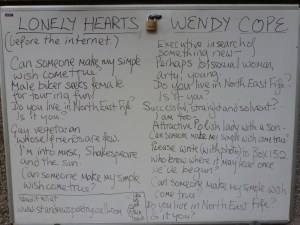 LONELY HEARTS
(before the internet)
Can someone make my simple
wish come true?
Male biker seeks female
for touring fun
Do you live in North East Fife?
Is it you?
Gay vegetarian
whose friends are few,
I'm into music, Shakespeare
and the sun
Can someone make my simple
wish come true?
Read it all at
www.standrewspoetrywall.com
WENDY COPE
Executive in search of
something new—
Perhaps bisexual woman,
arty, young.
Do you live in North East Fife?
Is it you?
Successful, straight and solvent?
I am too—
Attractive Polish lady with a son.
Can someone make my simple wish come true?
Please write (with photo) to Box 152
who knows where it may lead once
we've begun?
Can someone make my simple wish
come true
Do you live in North East Fife?
Is it you?